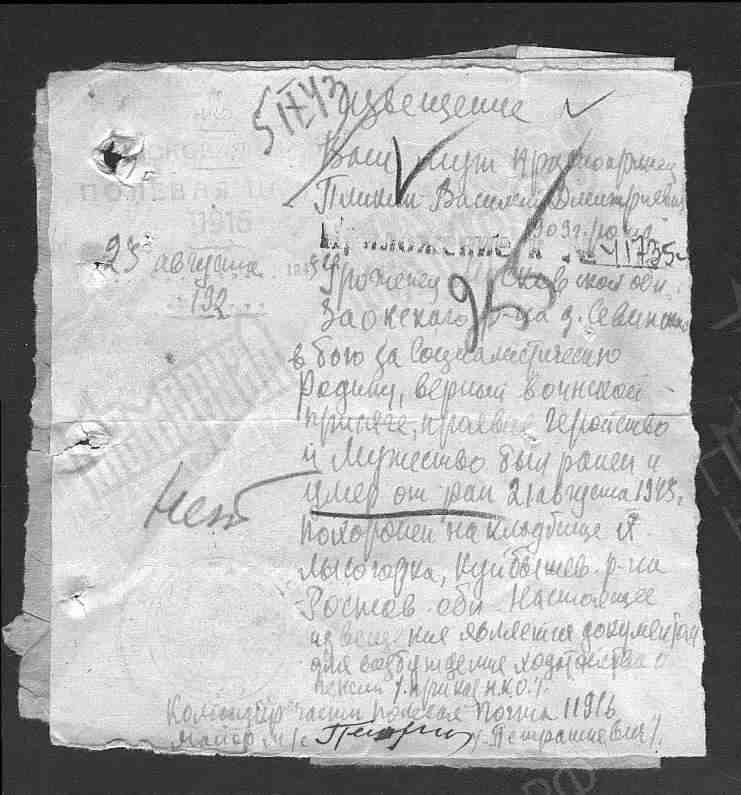 5 IX 43 Извещение
Ваш муж красноармеец
Василий Дмитриевич
1909 г. рожд.
11916
23 августа
№ 41735
132
Уроженец Московской обл.
95
Заокского р-на д.
в бою за Социалистическую
Родину, верный воинской
присяге, проявив геройство
и мужество был ранен и
умер от ран 21 августа 1943 г.
Нет
похоронен на кладбище
Лысогорка, Куйбышев. р-на
Ростов. обл. Настоящее
извещение является документом
для возбуждения ходатайства о
пенсии /приказ НКО /.
Командир части полевая почта 11916
майор м/с /Петрашкевич/.